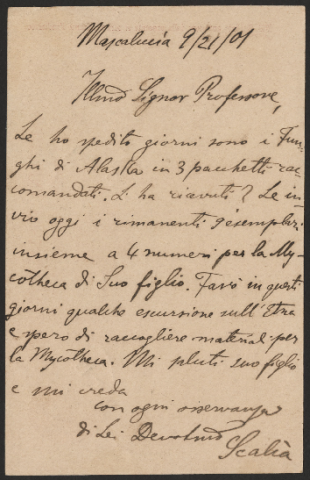 Mascalucia 9/21/01
Illmo Signor Professore,
Le ho spedito giorni sono i Fun-
ghi di Alaska in 3 pacchetti rac-
comandati. L ha ricevuti? Le in-
vio oggi i rimanenti 9 esemplari
insieme a 4 numeri per la My-
cotheca di Suo figlio. Farò in questi
giorni qualche escursione sull'Etna
e spero di raccogliere material per
la Mycotheca. Mi saluti suo figlio
e mi creda
con ogni osservanza
di Lei Devotmo
Scalia